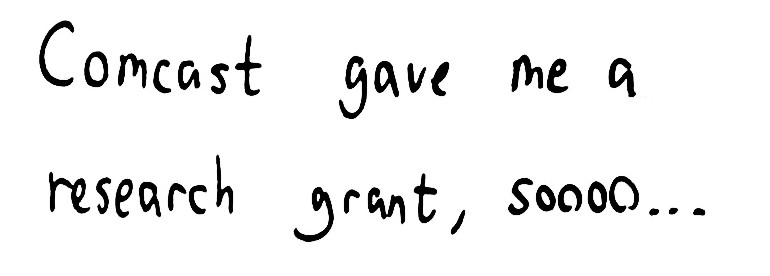 Comcast gave me a
research grant, soooo...